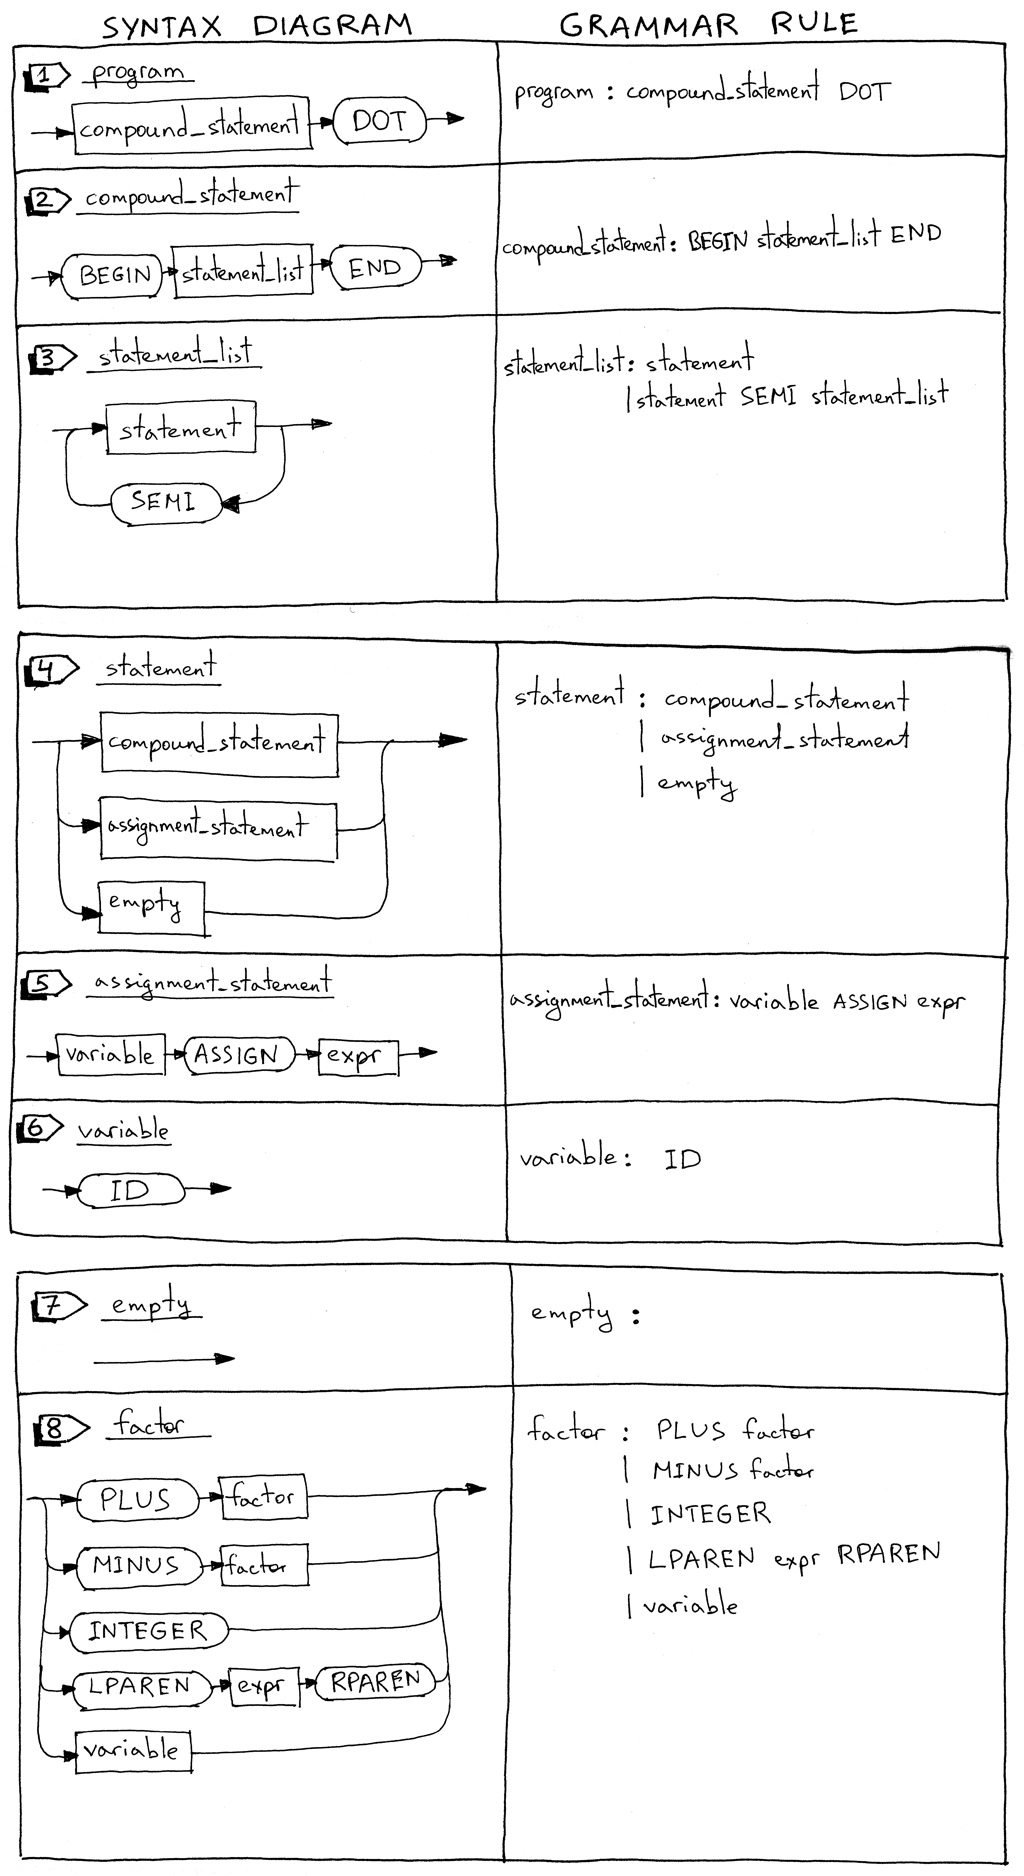 SYNTAX DIAGRAM
GRAMMAR RULE
1 program
compound_statement DOT
program : compound_statement DOT
2 compound_statement
BEGIN statement_list END
compound_statement: BEGIN statement_list END
3 statement_list
statement
SEMI
statement_list: statement
| statement SEMI statement_list
4 statement
compound_statement
assignment_statement
empty
statement : compound_statement
| assignment_statement
| empty
5 assignment_statement
variable ASSIGN expr
assignment_statement: variable ASSIGN expr
6 variable
ID
variable: ID
7 empty
empty :
8 factor
PLUS factor
MINUS factor
INTEGER
LPAREN expr RPAREN
variable
factor : PLUS factor
| MINUS factor
| INTEGER
| LPAREN expr RPAREN
| variable